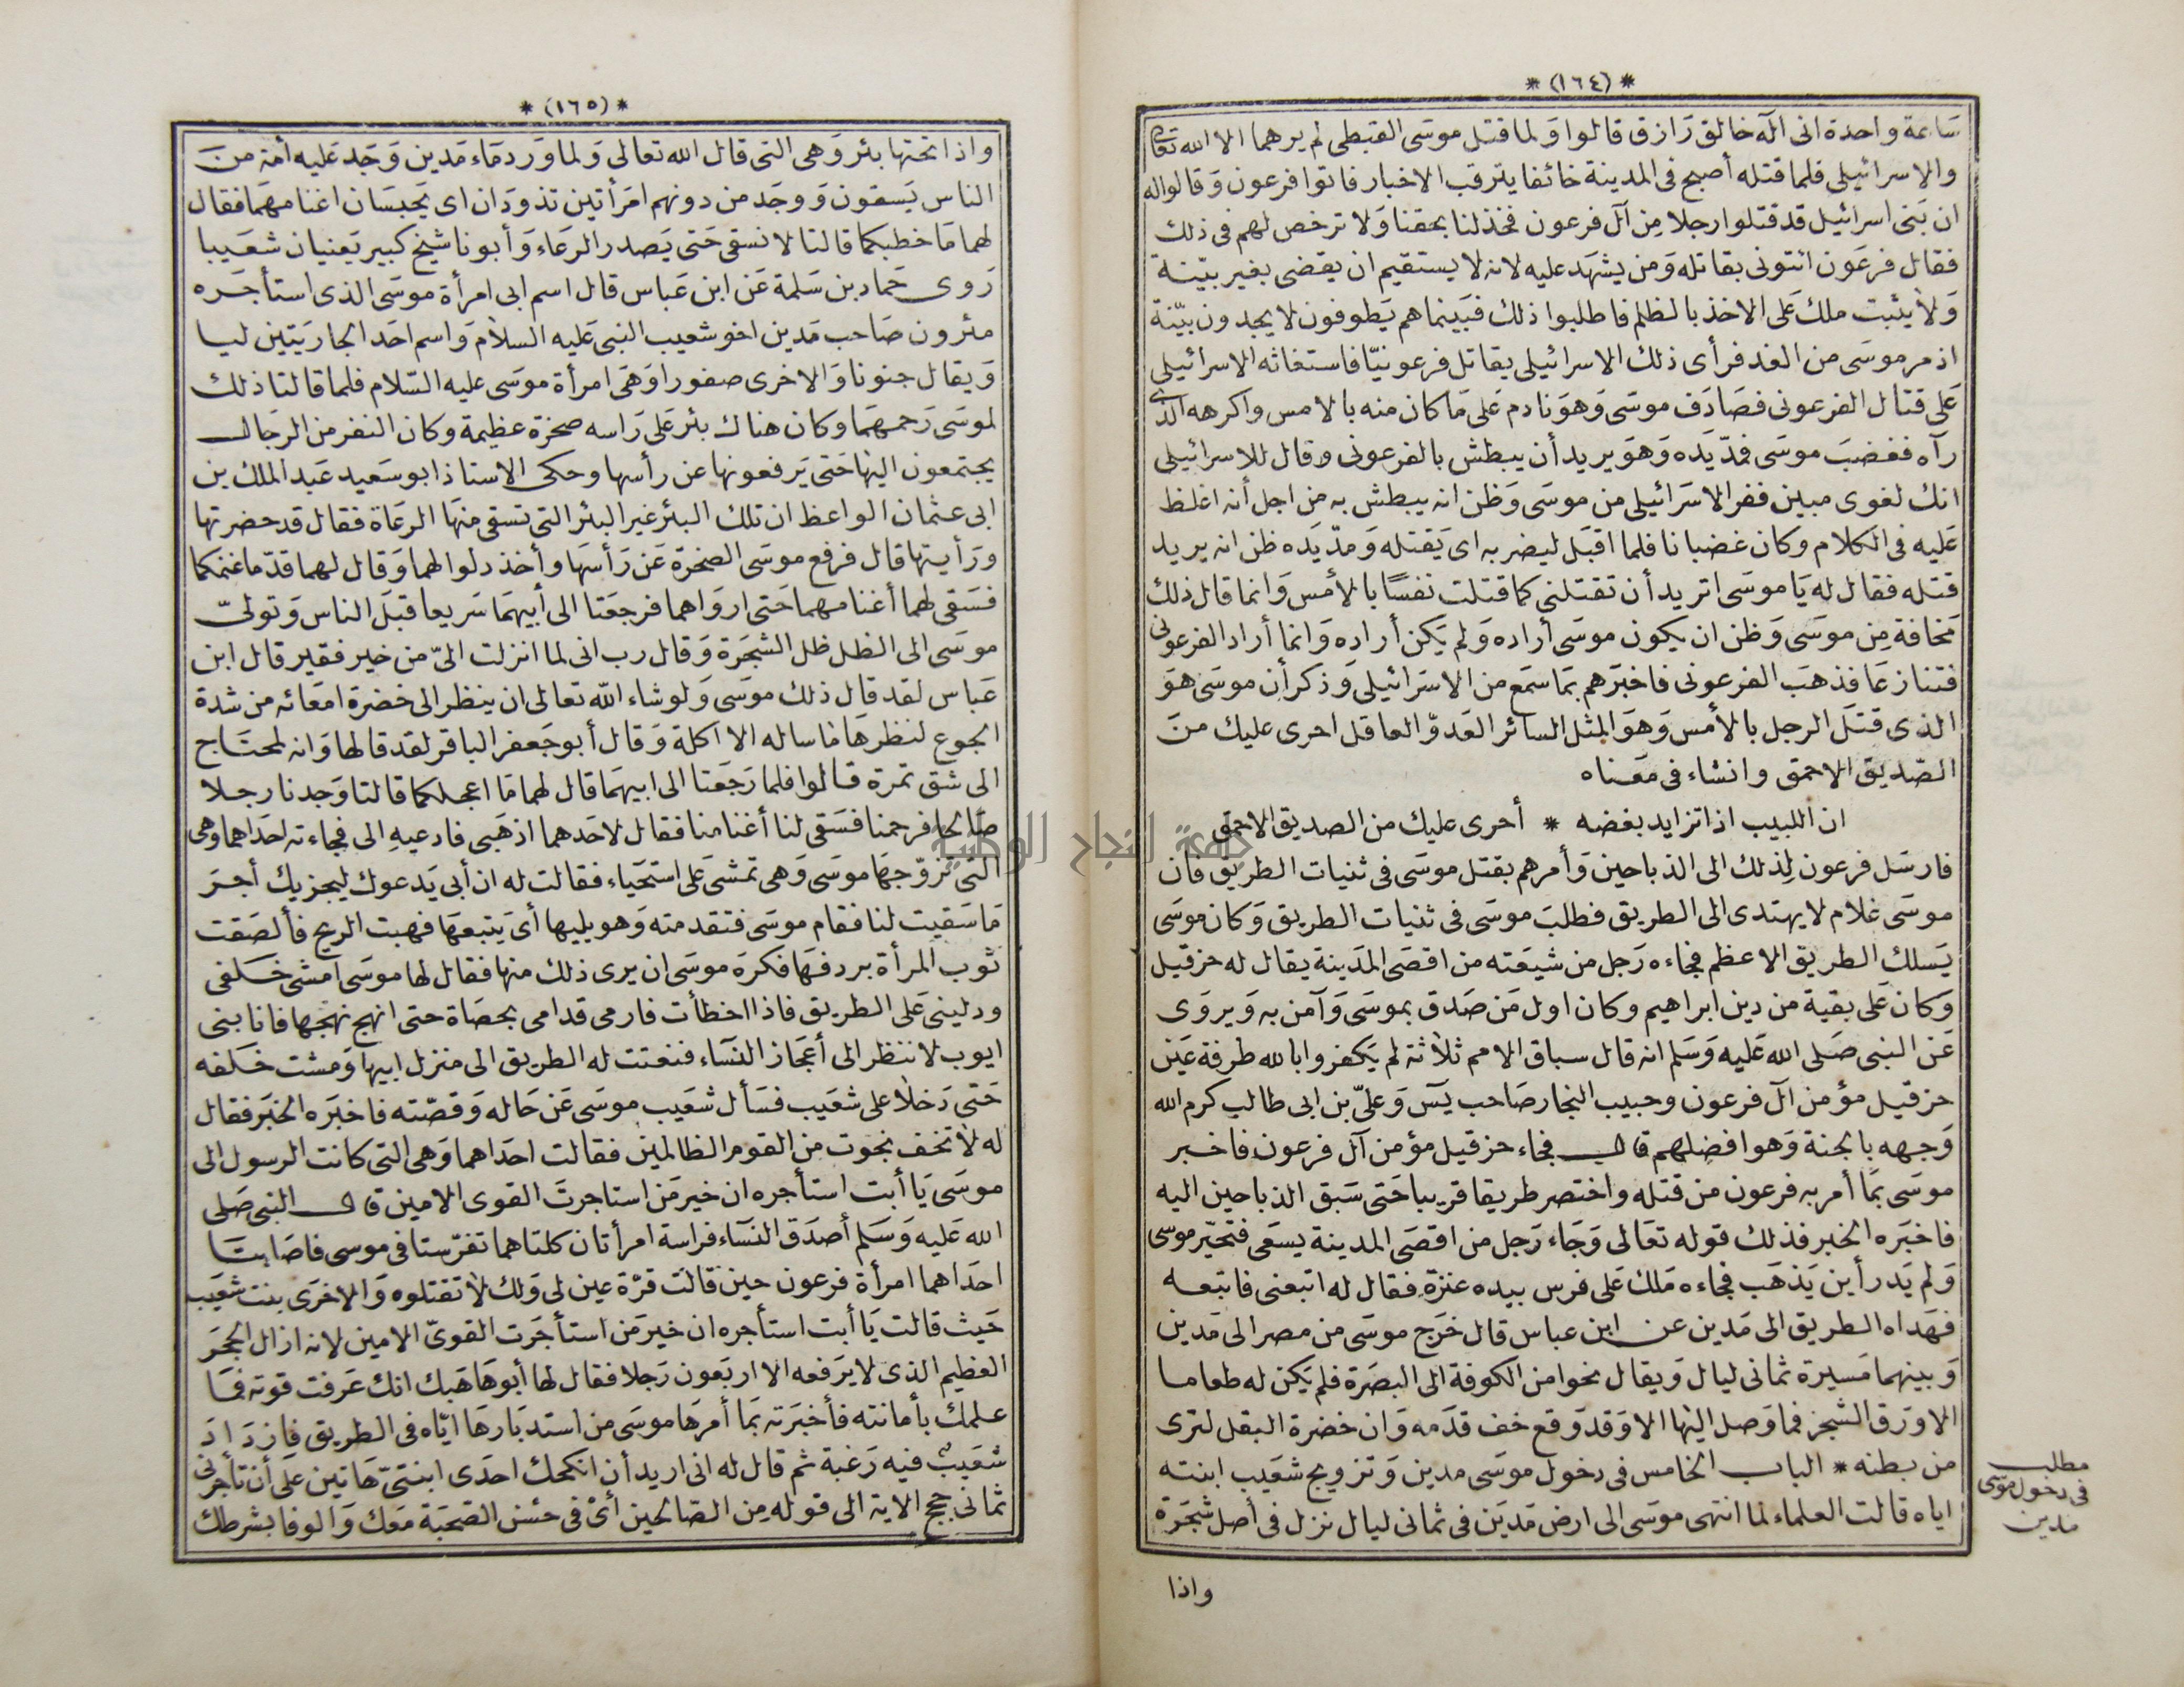 * (١٦٤) *
سَاعة واحدة انى الٓه خالق رَازق قالوا وَلما قتل موسَى القبطى لم يرهما الا الله تعالى
والاسرائيلى فلما قتله أصبح فى المدينة خائفا يترقب الاخبار فاتوا فرعون وَقالوا له
ان بَنى اسرائيل قد قتلوا رجلا مِن آل فرعون فخذ لنا بحقنا وَلا ترخص لهم فى ذلك
فقال فرعَون ائتونى بقاتله وَمن يشهَد عليه لانه لا يستقيم ان يقضى بغير بيّنة
وَلا يثبت ملك عَلى الاخذ بالظلم فاطلبوا ذلك فبَينما هم يَطوفون لا يجدون بيّنة
اذ مر موسَى من الغد فرأى ذلك الاسرائيلى يقاتل فرعونيّا فاستغاثه الاسرائيلى
عَلى قتال الفرعونى فصَادَف موسَى وَهوَ نادم عَلى مَا كان منه بالامس واكرهه الذى
رآه فغضبَ موسَى فمدّ يَده وَهوَ يريد أن يبطش بالفرعونى وقال للاسرائيلى
انك لغوى مبين ففر الاسَرائيلى من موسَى وَظن انه يبطش به من اجل أنه اغلظ
عَليه فى الكلام وكان غضبانا فلما اقبَل ليضربه اى يَقتله وَمدّ يَده ظن انه يريد
قتله فقال له يَا موسَى اتريد أن تقتلنى كما قتلت نفسًا بالأمس وَانما قال ذلك
مَخافة مِن موسَى وَظن ان يكون موسَى أراده وَلم يَكن أراده وَانما أراد الفرعونى
فتنازعَا فذهبَ الفرعونى فاخبَرهم بمَا سَمع من الاسَرائيلى وَذكر أن موسَى هوَ
الذى قتلَ الرجل بالأمس وَهوَ المثل السائر العَدوّ العاقل احرى عليك منَ
الصّديق الاحمق وانشاء فى معَناه
ان اللبيب اذا تزايد بغضه * أحرى عليك من الصديق الاحمق
فارسَل فرعون لِذلك الى الذباحين وَأمرهم بقتل موسَى فى ثنيات الطريق فان
موسَى غلام لا يهتدى الى الطريق فطلبَ موسَى فى ثنيات الطريق وَكان موسَى
يَسلك الطريق الاعظم فجاءه رَجل من شيعَته من اقصَى المَدينة يقال له حزقيل
وَكان عَلى بقية من دين ابراهيم وكان اول مَن صَدق بموسَى وَآمن به وَيروَى
عَن النبى صَلى الله عَليه وَسَلم انه قال سباق الامم ثلاثة لم يَكفروا بالله طرفة عَين
حزقيل مؤمن آل فرعون وحبيب النجار صَاحب يٓس وَعلىّ بن ابى طالب كرم الله
وَجهه بالجنة وَهوا فضلهم قال فجاء حزقيل مؤمن آل فرعون فاخبر
موسَى بمَا أمر به فرعون من قتله واختصر طريقا قريبا حَتى سَبق الذباحين اليه
فاخبَره الخبر فذلك قوله تعَالى وَجَاء رَجل من اقصَى المدينة يسعَى فتحيّر موسى
وَلم يَدر أين يَذهَب فجاءه مَلك عَلى فرس بيده عنزة فقال له اتبعنى فاتبَعه
فهَداه الطريق الى مَدين عن ابن عباس قال خرَج موسَى من مصر الى مَدين
وَبينهما مَسيرة ثمانى ليال وَيقال نحوا من الكوفة الى البصَرة فلم يَكن له طعاما
الا وَرق الشجر فما وَصل اليها الا وَقد وَقع خف قدَمه وَان خضرة البقل لترى
من بطنه * الباب الخامس فى دخول موسَى مدين وَتزويج شعَيب ابنته
اياه قالت العلماء لما انتهى موسَى الى ارض مَديَن فى ثمانى ليال نزل فى أصل شجَرة
مطلب
فى دخول موسَى
مدين
واذا
* (١٦٥) *
واذا تحتها بئر وَهى التى قال الله تعالى وَلما وَرد مَاء مَدين وَجَد عَليه أمة منَ
الناس يَسقون وَوجَد من دونهم امرَأتين تذودَان اى يَحبسَان اغنامهمَا فقال
لهما مَا خطبكما قالتا لا نسقى حَتى يَصدر الرعَاء وَأبونا شيخ كبير يَعنيان شعَيبا
رَوى حَماد بن سَلمة عَن ابن عَباس قال اسم ابى امرأة موسَى الذى استأجَره
مثرون صَاحب مَدين اخو شعيب النبى عَليه السلام وَاسم احَد الجاريَتين ليا
وَيقال حنونا وَالاخرى صفورا وَهىَ امرأة موسَى عليه السّلام فلما قالتا ذلك
لموسَى رَحمهمَا وكان هناك بئر عَلى رَاسه صخرة عظيمة وكان النفر من الرجَال
يجتمعون اليها حَتى يَرفعونها عن رأسها وحكى الاستاذ ابو سَعيد عَبد الملك بن
ابى عثمان الواعظ ان تلك البئر غير البئر التى تسقى منهَا الرعَاة فقال قد حضرتها
ورَأيتها قال فرفع موسَى الصخرة عَن رَأسهَا وأخذ دلوا لهما وَقال لهما قدّما غنمكما
فسَقى لهما أغنامهما حَتى اروَاهما فرجعَتا الى أبيهمَا سَريعا قبَلَ الناس وَتولىّ
موسَى الى الظل ظل الشجَرة وَقال رب انى لما انزلت الىّ من خير فقير قال ابن
عَباس لقد قال ذلك موسَى وَلو شاء الله تعالى ان ينظر الى خضرة امعَائه من شدة
الجوع لنظرهَا مَا ساله الا اكلة وَقال أبو جَعفر الباقر لقد قالها وَانه لمحتَاج
الى شق تمرة قالوا فلما رَجَعَتا الى ابيهمَا قال لهما مَا اعجلكما قالتا وَجدنا رجلا
صَالحا فرحمنا فسَقى لنا أغنامنا فقال لاحَدهما اذهَبى فادعيهِ الى فجاءته احَداهما وهى
التى تزوّجهَا موسَى وَهى تمشى عَلى استحَياء فقالت له ان أبى يَدعوك ليجزيك أجرَ
مَا سَقيت لنا فقام موسَى فتقدمته وَهو يليها أى يَتبعهَا فهبت الريح فألصَقت
ثوب المرأة بردفهَا فكرَه موسَى ان يرى ذلك منها فقال لها موسَى امشى خَلفى
ودلينى عَلى الطريق فاذا اخطأت فارمى قدامى بحصَاة حتى انهج نهجها فانا بنى
ايوب لا ننظر الى أعجَاز النسَاء فنعتت له الطريق الى منزل ابيها وَمشت خَلفه
حَتى دَخلا على شعَيب فسَأل شعَيب موسَى عَن حَاله وَقصّته فاخبَره الخبَر فقال
له لا تخف نجوت من القوم الظالمين فقالت احدَاهما وَهى التى كانت الرسول الى
موسَى يَا أبت استأجره ان خير مَن استاجرتَ القوى الامين قال النبى صَلى
الله عَليه وَسَلم أصدَق النسَاء فراسة امرأتان كلتاهما تفرّستا فى موسى فاصَابتَا
احَداهما امرأة فرعون حين قالت قرّة عين لى وَلك لا تقتلوه وَالاخرَى بنت شعَيب
حَيث قالت يَا أبت استأجره ان خيرَ مَن استأجَرت القوىّ الامين لانه ازال الحجَر
العظيم الذى لا يرَفعه الا اربَعون رَجلا فقال لها أبوهَا هَبك انك عَرفت قوته فمَا
علمك بأمانته فأخبَرته بمَا أمرَها موسَى من استدبَارهَا ايّاه فى الطريق فازدَادَ
شعَيبٌ فيه رَغبة ثم قال له انى اريد أن انكحك احدَى ابنتىّ هَاتين عَلى أن تأجرنى
ثمانى حجج الاية الى قوله مِن الصّالحين أىْ فى حسْن الصّحبَة مَعك وَالوفا بشرطك
جامعة النجاح الوطنية